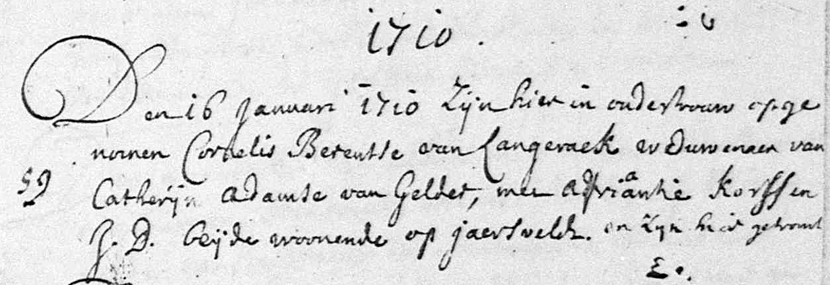 1710.
Den 16 Januari 1710 Zijn hier in ondertrouw opge
nomen Cornelis Berentse van Langeraek weduwenaer van
59 Catherijn Adamse van Gelder, met Adriantie Korssen
J. D. beijde woonende op jaersveldt. en zijn hier getrout